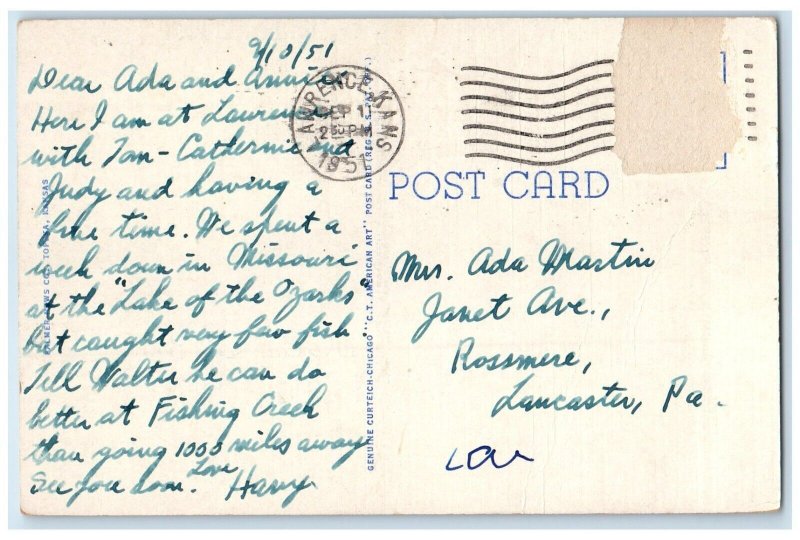 9/10/51
Dear Ada and Annie
Here I am at Lawrence
with Tom - Catherine and
Judy and having a
fine time. We spent a
week down in Missouri
at the "Lake of the Ozarks"
but caught very few fish.
Tell Walter he can do
better at Fishing Creek
than going 1000 miles away
See you soon. Love Harry
LAWRENCE, KANS
SEP 11
2 30 PM
1951
POST CARD
Mrs. Ada Martin
Janet Ave.,
Rossmere,
Lancaster, Pa.
NEWS CO., TOPEKA, KANSAS
GENUINE CURTEICH-CHICAGO "C.T. AMERICAN ART" POST CARD (REG. U.S. PAT. OFF.)